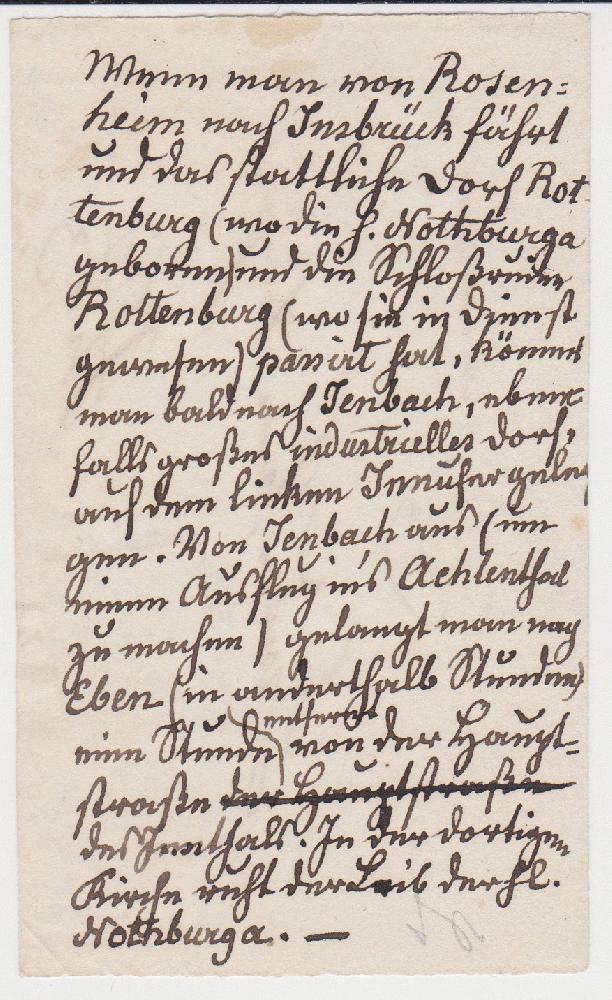 Wenn man von Rosen-
heim nach Insbrück fährt
und das stattliche Dorf Rot-
tenburg (wo die h. Nothburga
geboren) und die Schloßruine
Rottenburg (wo sie in Dienst
gewesen) passirt hat, kömmt
man bald nach Jenbach, eben-
falls großes industrielles Dorf,
auf dem linken Innufer gele-
gen. Von Jenbach aus (um
einen Ausflug in's Achlenthal
zu machen) gelangt man nach
Eben (in anderthalb Stunden)
eine Stunde entfernt von der Haupt-
straße der Hauptstraße
des Innthals. In der dortigen
Kirche ruht der Leib der hl.
Nothburga. —